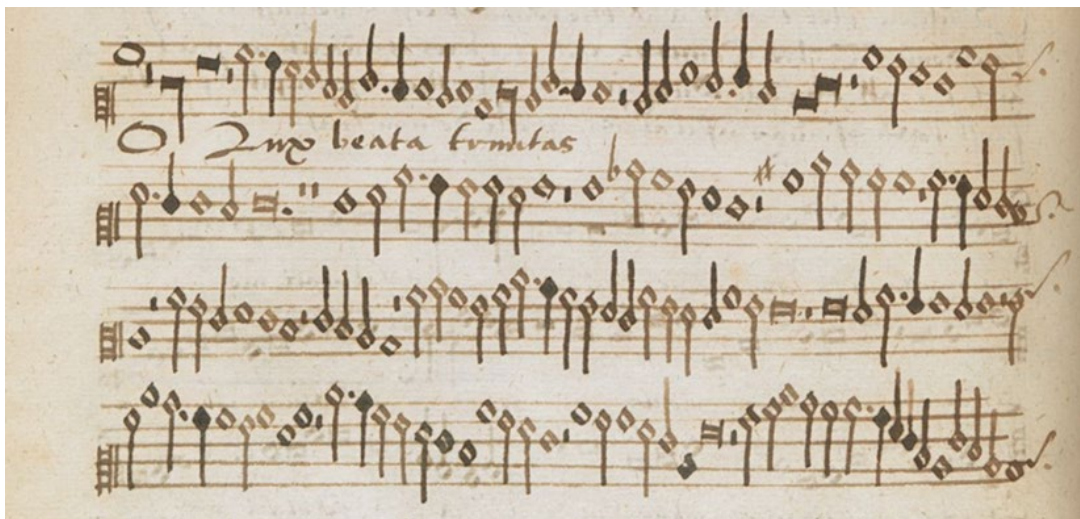 O Lux beata trinitas